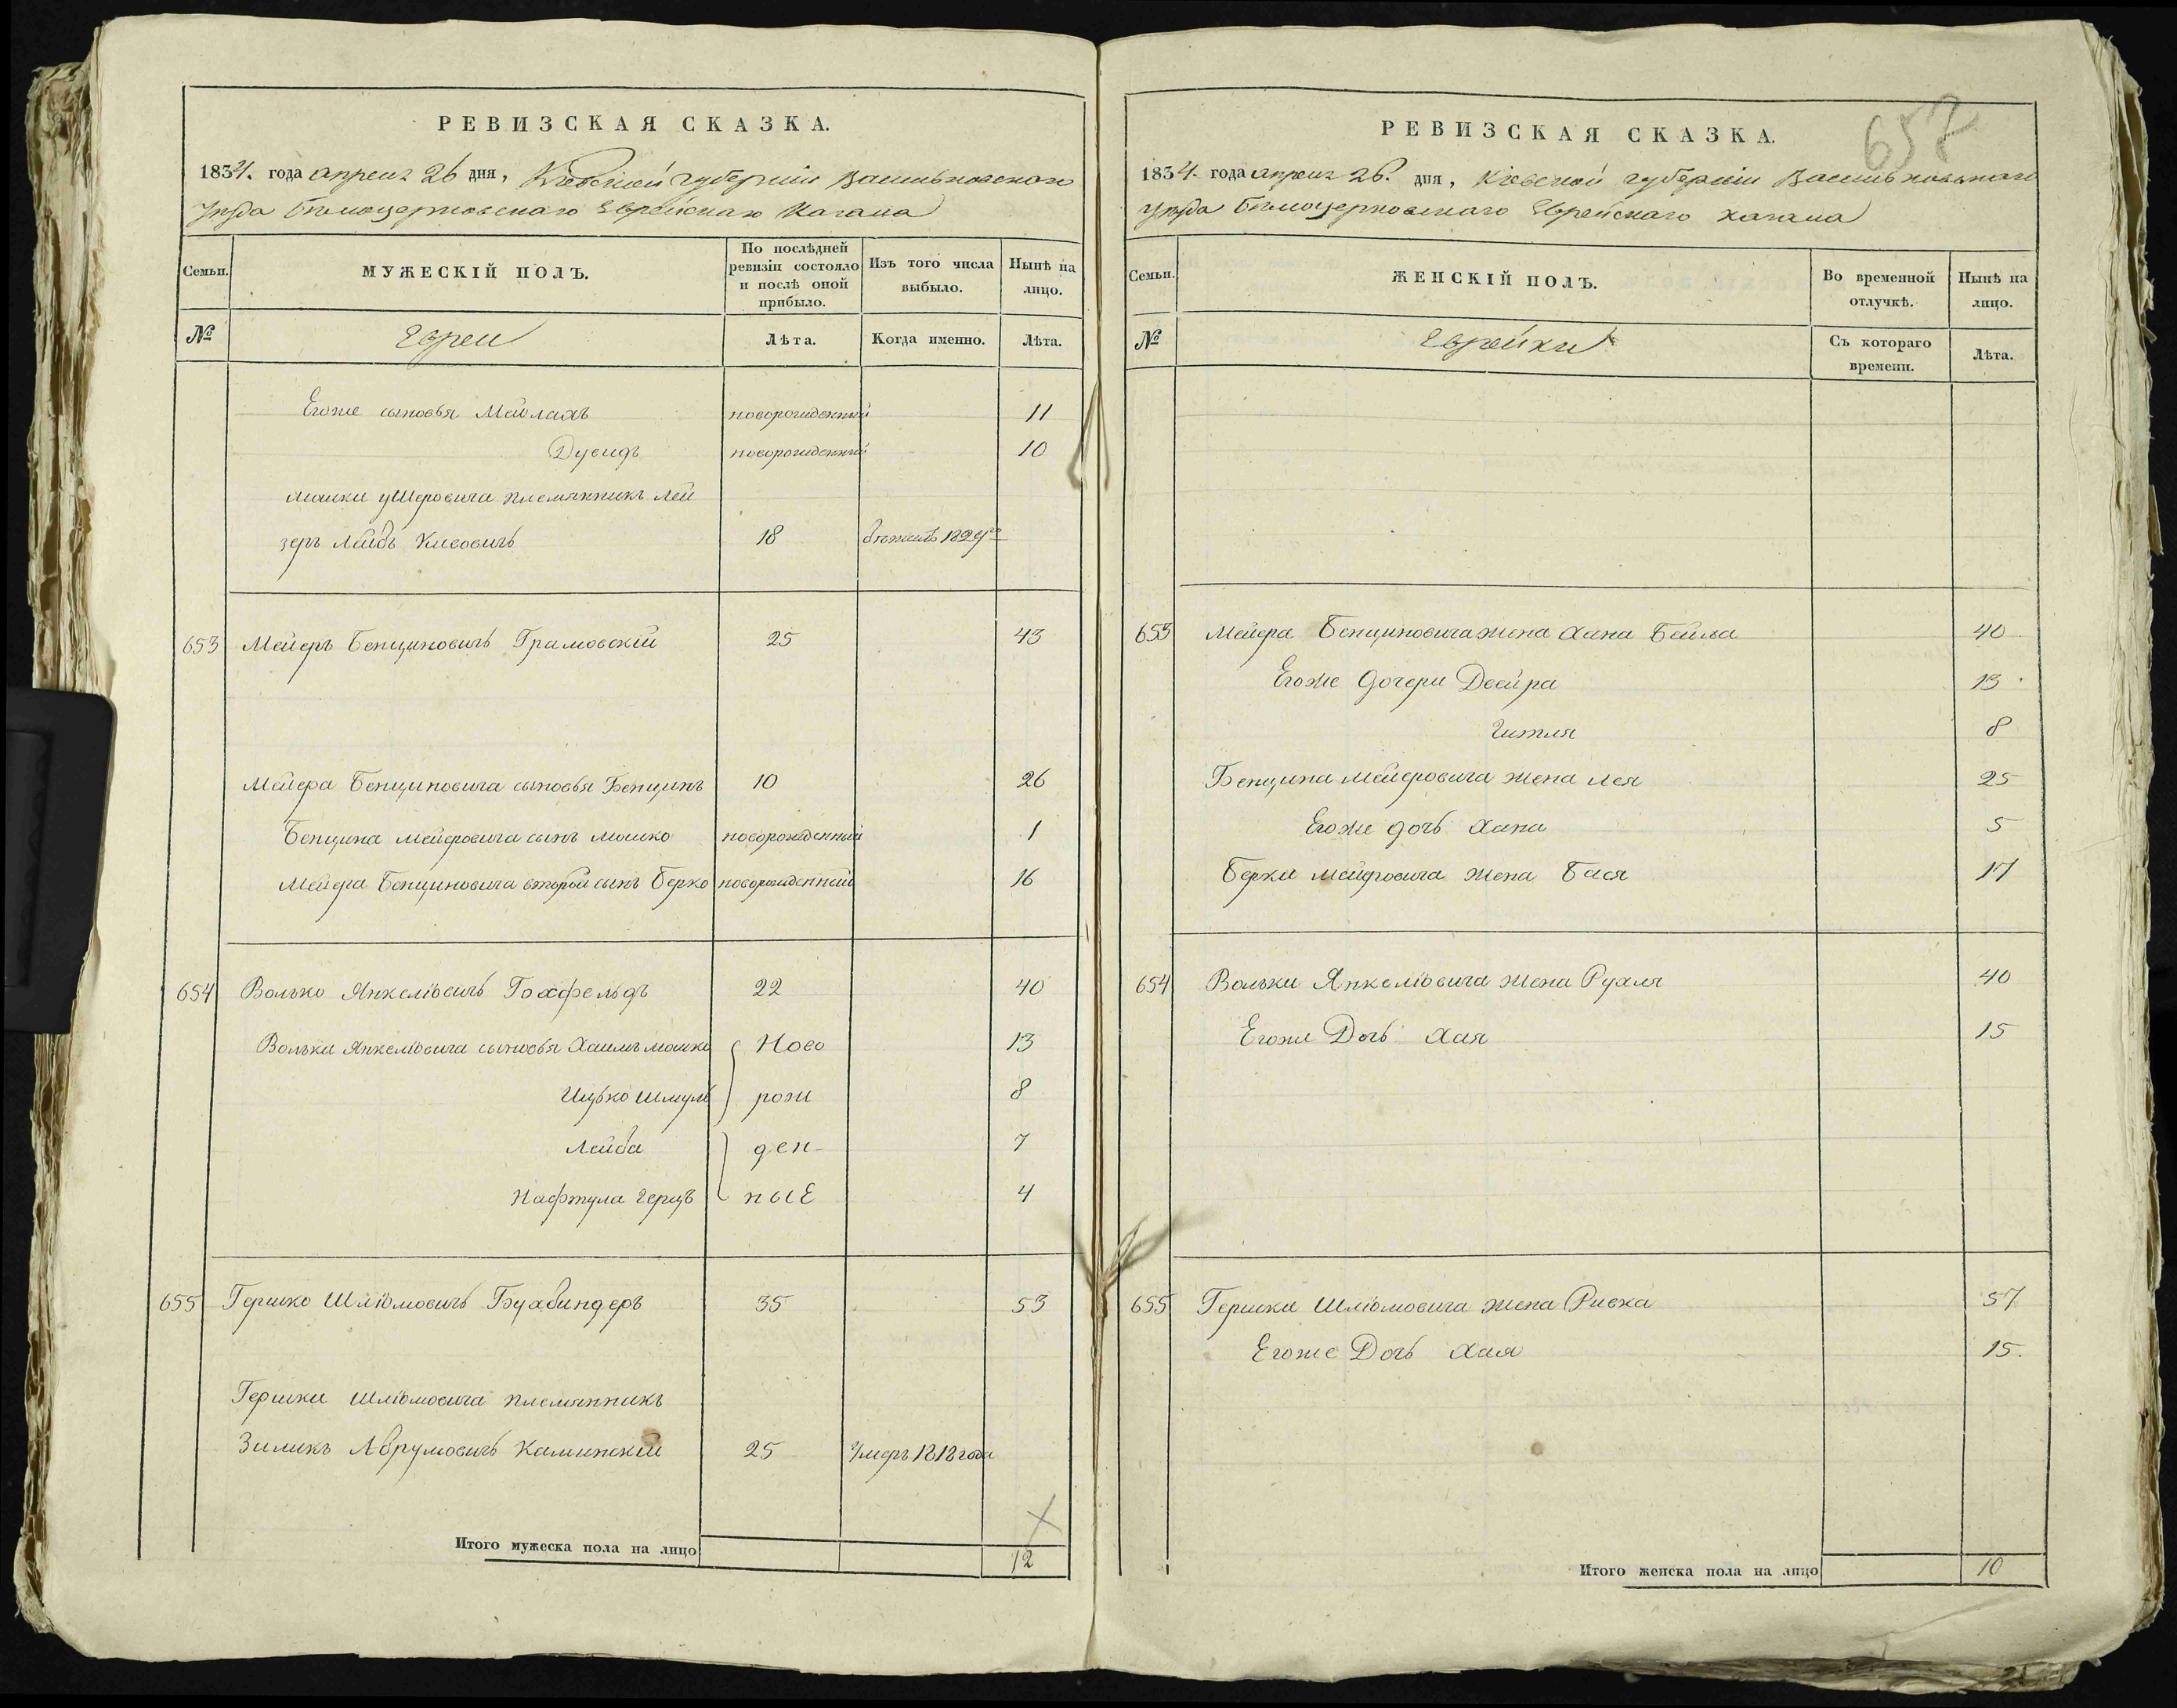 РЕВИЗСКАЯ СКАЗКА.
1834. года апреля 26 дня, Кіевской губерніи Васильковского
уезда Белоцерковскаго Еврейскаго Кагала
Семьи.
МУЖЕСКІЙ ПОЛЪ.
По послѣдней ревизіи состояло и послѣ оной прибыло.
Изъ того числа выбыло.
Нынѣ на лицо.
№
Евреи
Лѣта.
Когда именно.
Лѣта.
Егоже сыновья Мейлахъ новорожденный 11
Дувидъ новорожденный 10
Мошки Племянникъ Лей
зеръ Лейбъ 18 бежалъ
653 Мейеръ Бенциновичъ Грамовскій 25 43
Мейера Бенциновича сыновья Бенцинъ 10 26
Бенцина Мейеровича сынъ Мошко новорожденный 1
Мейера Бенциновича второй сынъ Берко новорожденный 16
654 Волько Янкеліовичъ Гохфельдъ 22 40
Вольки Янкеліовича сыновья Хаимъ Мошко Ново 13
Ицько Шмуль рож 8
Лейба ден- 7
Нафтула Герцъ ные 4
655 Гершко Шліомовичъ Бухбиндеръ 35 53
Гершки Шліомовича племянникъ
Зиликъ Аврумовичъ Каминскій 25 Умеръ 1818 года
Итого мужеска пола на лицо 12
657
РЕВИЗСКАЯ СКАЗКА.
1834. года апреля 26. дня, Кіевской губерніи Васильковскаго
уезда Белоцерковскаго Еврейскаго кагала
Семьи.
ЖЕНСКІЙ ПОЛЪ.
Во временной отлучкѣ.
Нынѣ на лицо.
№
Еврейки
Съ котораго времени.
Лѣта.
653 Мейера Бенциновича жена Хана Бейла 40
Егоже дочери Двейра 13
Гитля 8
Бенцина Мейеровича жена Лея 25
Егоже дочь Хана 5
Берки Мейеровича жена Бася 17
654 Вольки Янкеліовича жена Рухля 40
Егоже Дочь Хая 15
655 Гершки Шліомовича жена Ривка 57
Егоже Дочь Хая 15.
Итого женска пола на лицо 10